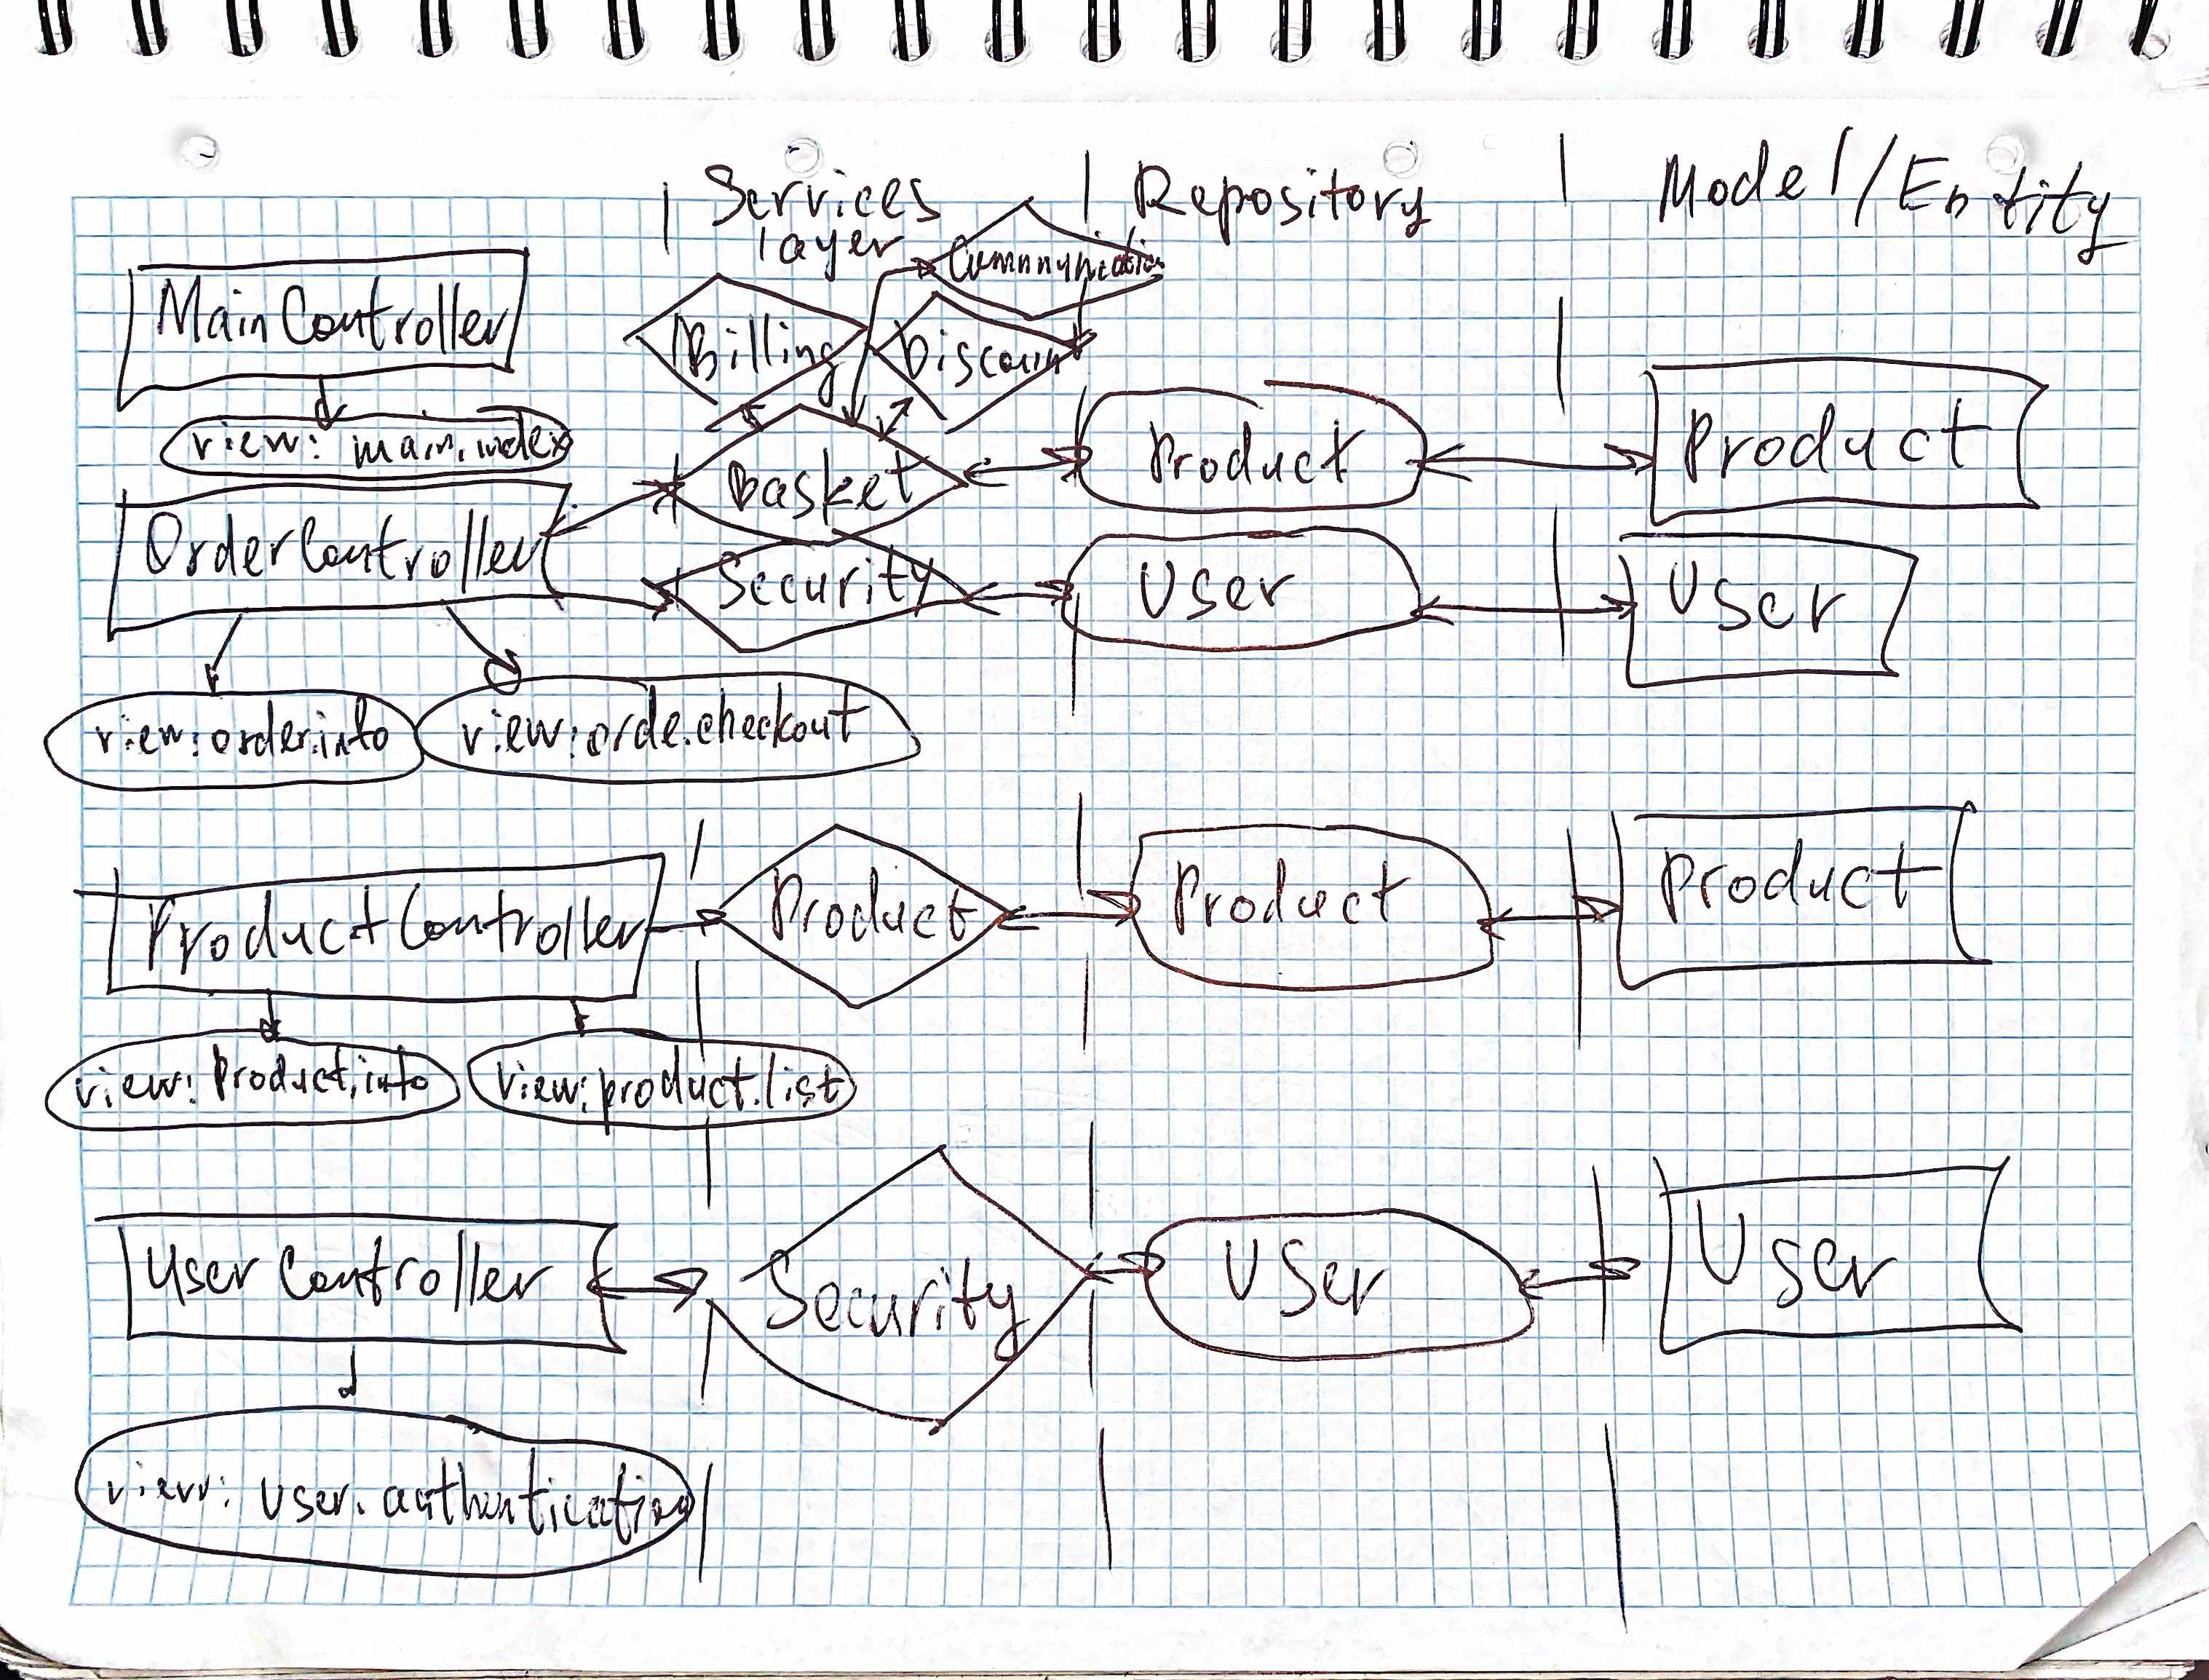 Services layer
Repository
Model/Entity
Communication
MainController
Billing
Discount
view: main.index
Basket
Product
Product
OrderController
Security
User
User
view:order.info
view:orde.checkout
ProductController
Product
Product
Product
view: Product.info
view:product.list
User Controller
Security
User
User
view: user.authentication